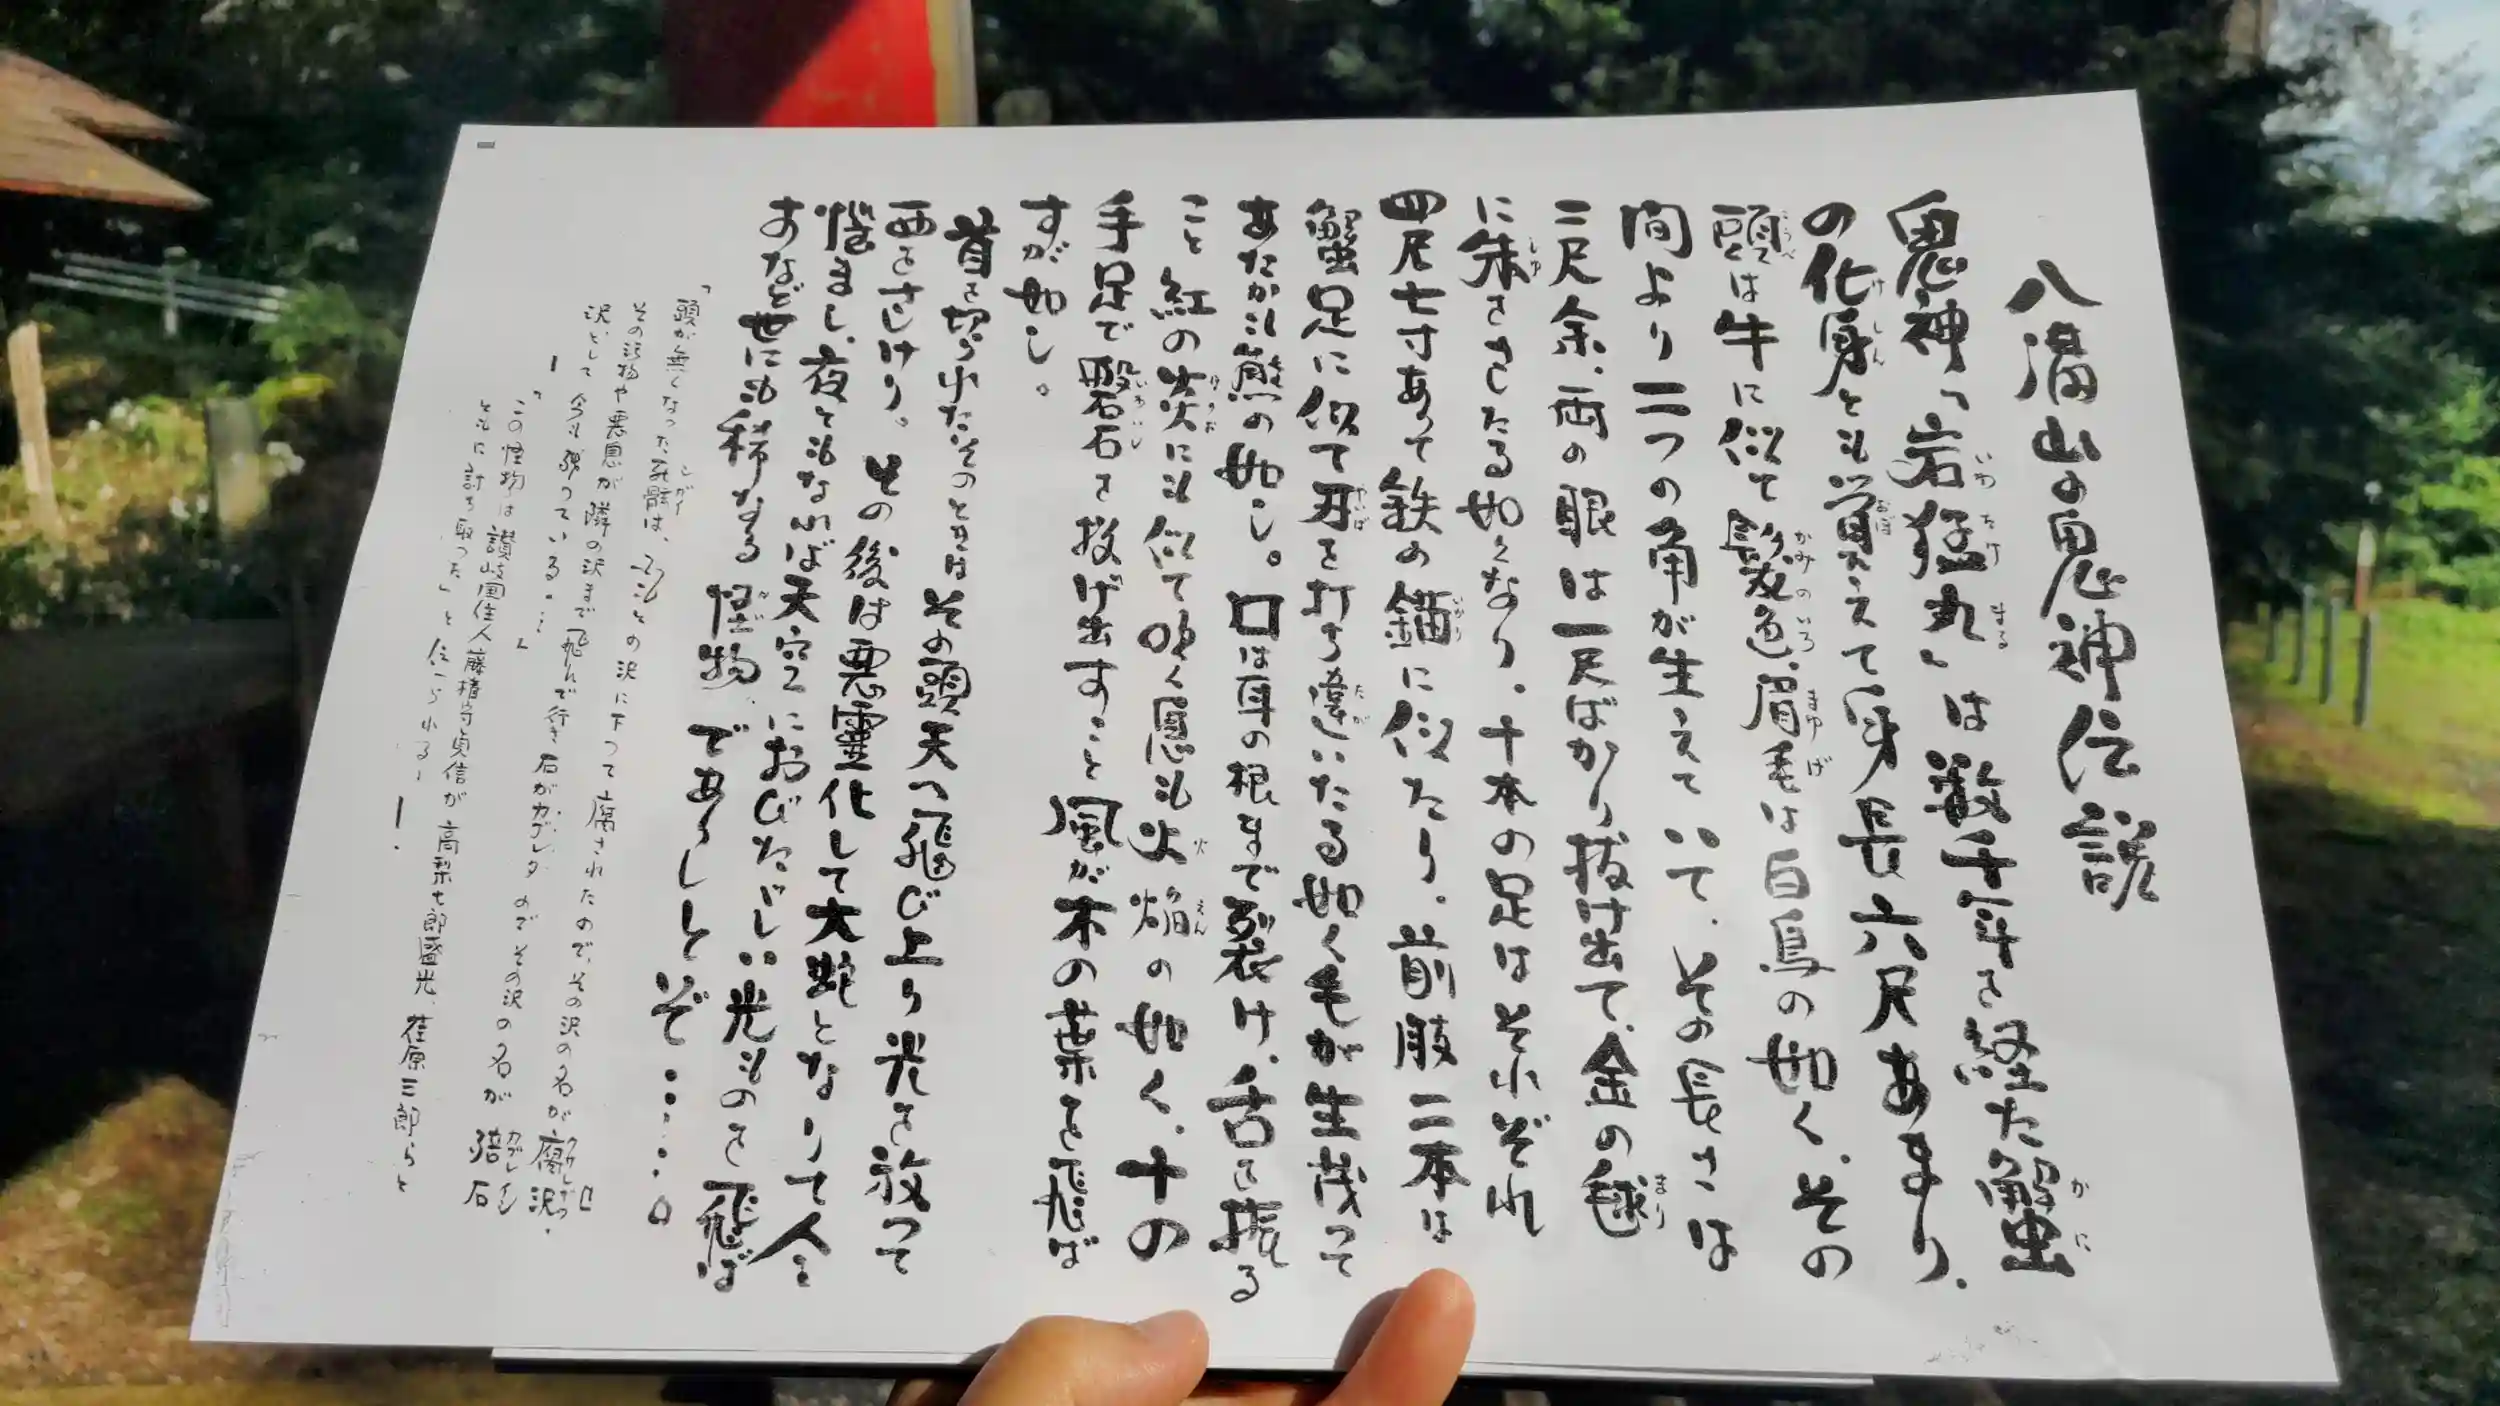 八溝山の鬼神伝説
鬼神「岩猛丸」は数千年を経た蟹
の化身とも覚えて身長六尺あまり、
頭は牛に似て髪色、眉毛は白鳥の如く、その
間より二つの角が生えていて、その長さは
二尺余、両の眼は一尺ばかり抜け出て、金の毬
に朱をさしたる如くなり、十本の足はそれぞれ
四尺七寸あって鉄の錨に似たり、前肢二本は
蟹足に似て刃を打ち違いたる如く毛が生茂って
あたかも熊の如し。口は耳の根まで裂け、舌を振る
こと紅の炎にも似て吹く息も火焔の如く、十の
手足で磐石を投げ出すこと風が木の葉を飛ば
すが如し。
首を切られたそのときはその頭天へ飛び上り光を放って
西をさしけり。その後は悪霊化して大蛇となりて人を
悩まし、夜ともなれば天空におびただしい光ものを飛ば
すなど世にも稀なる怪物であったとぞ……。
「頭が無くなった死骸は、ふもとの沢に下って腐されたので、その沢の名が腐沢、
その汚物や悪息が隣の沢まで飛んで行き石がカブレタのでその沢の名が 石
沢として今も残っている。…」
ー「この怪物は讃岐国住人藤権守貞信が高梨七郎盛光、荏原三郎らと
ともに討ち取った」と伝へられるーー。